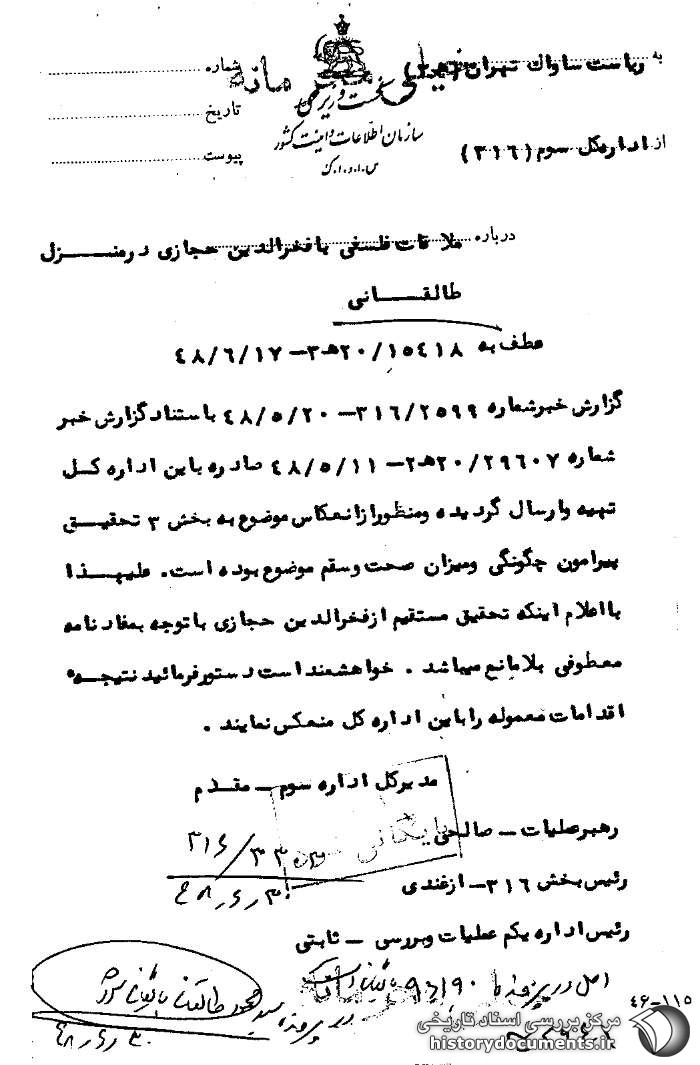 نخست وزیری
سازمان اطلاعات و امنیت کشور
س.ا.و.ا.ک
به ریاست ساواک تهران
از اداره کل سوم (۳۱۶)
شماره
تاریخ
پیوست
درباره ملاقات فلسفی با فخرالدین حجازی در منزل
طالقانی
عطف به ۲۰/۱۵۴۱۸ه۳ – ۴۸/۶/۱۷
گزارش خبر شماره ۳۱۶/۲۵۹۹ – ۴۸/۵/۲۰ با ستناد گزارش خبر
شماره ۲۰/۲۹۶۰۷ه۲ – ۴۸/۵/۱۱ صادره باین اداره کل
تهیه و ارسال گردیده و منظور از انعکاس موضوع به بخش ۳ تحقیق
پیرامون چگونگی و میزان صحت و سقم موضوع بوده است. علیهذا
با اعلام اینکه تحقیق مستقیم از فخرالدین حجازی با توجه بمفاد نامه
معطوفی بلامانع میباشد . خواهشمند است دستور فرمائید نتیجه
اقدامات معموله را باین اداره کل منعکس نمایند .
مدیر کل اداره سوم – مقدم
رهبر عملیات – صالحی
بایگانی شود
رئیس بخش ۳۱۶ – ازغندی
رئیس اداره یکم عملیات و بررسی – ثابتی
اصل در پرونده
۴۶-۱۱۵
مرکز بررسی اسناد تاریخی
historydocuments.ir